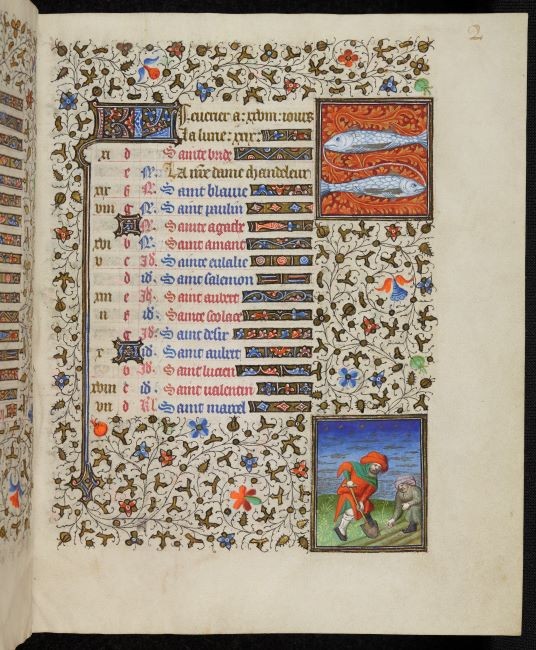 2
Feurier a xxviii iours
La lune xxix
xi d Sainte bride
e N La nre dame chandeleur
xix f N Saint blaiue
viii g N Saint paulin
A N Sainte agathe
xvi b N Sainte amand
v c Id Sainte eulalie
d id Saint salemon
xiii e Id Saint aubert
ii f id Sainte scolace
g Id Saint desir
x A id Saint aubert
b Id Saint lucien
xviii c id Saint ualentin
vii d kl Saint marcel